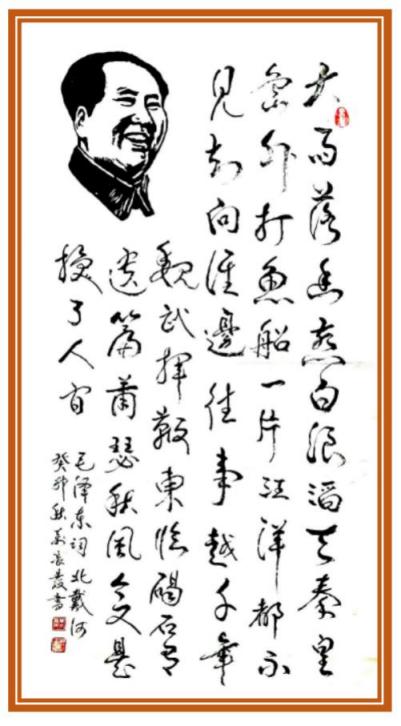 大雨落幽燕白浪滔天秦皇
島外打魚船一片汪洋都不
見知向誰邊往事越千年
魏武揮鞭東臨碣石有
遺篇蕭瑟秋風今又是
換了人间
毛泽东词北戴河
癸卯秋書